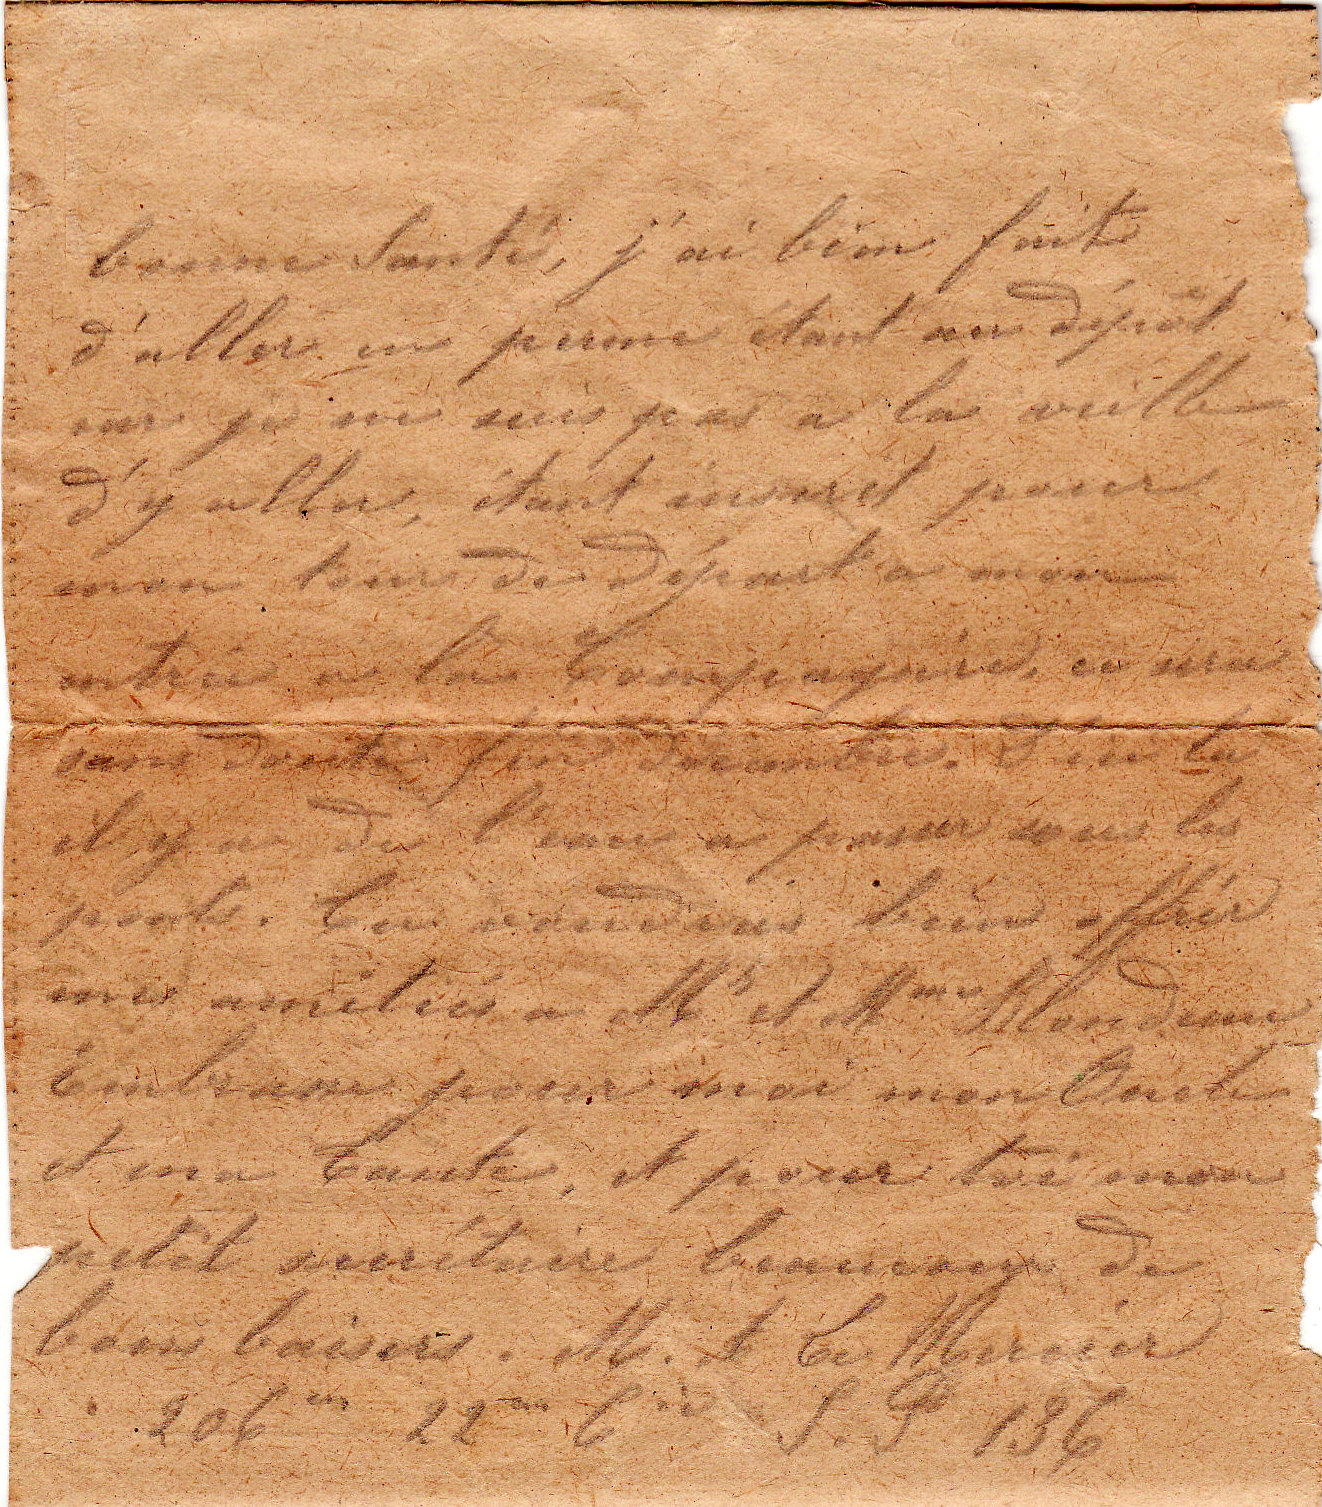 bonne Santé, j'ai bien fait
d'aller en perme étant au dépôt
car je ne suis pas a la veille
d'y aller, étant inscrit pour
mon tour de départ a mon
entrée a la Compagnie, ce sera
sans doute fin décembre. D'ici la
il y a de l'eau a passer sous les
ponts. Tu voudras bien offrir
mes amitiés a Mr et Mme Blondeau
Embrasse pour moi mon Oncle
et ma Tante, et pour toi mon
petit secrétaire beaucoup de
bons baisers. M. et C. Mercier
206 em 22 em C ie S. P 136